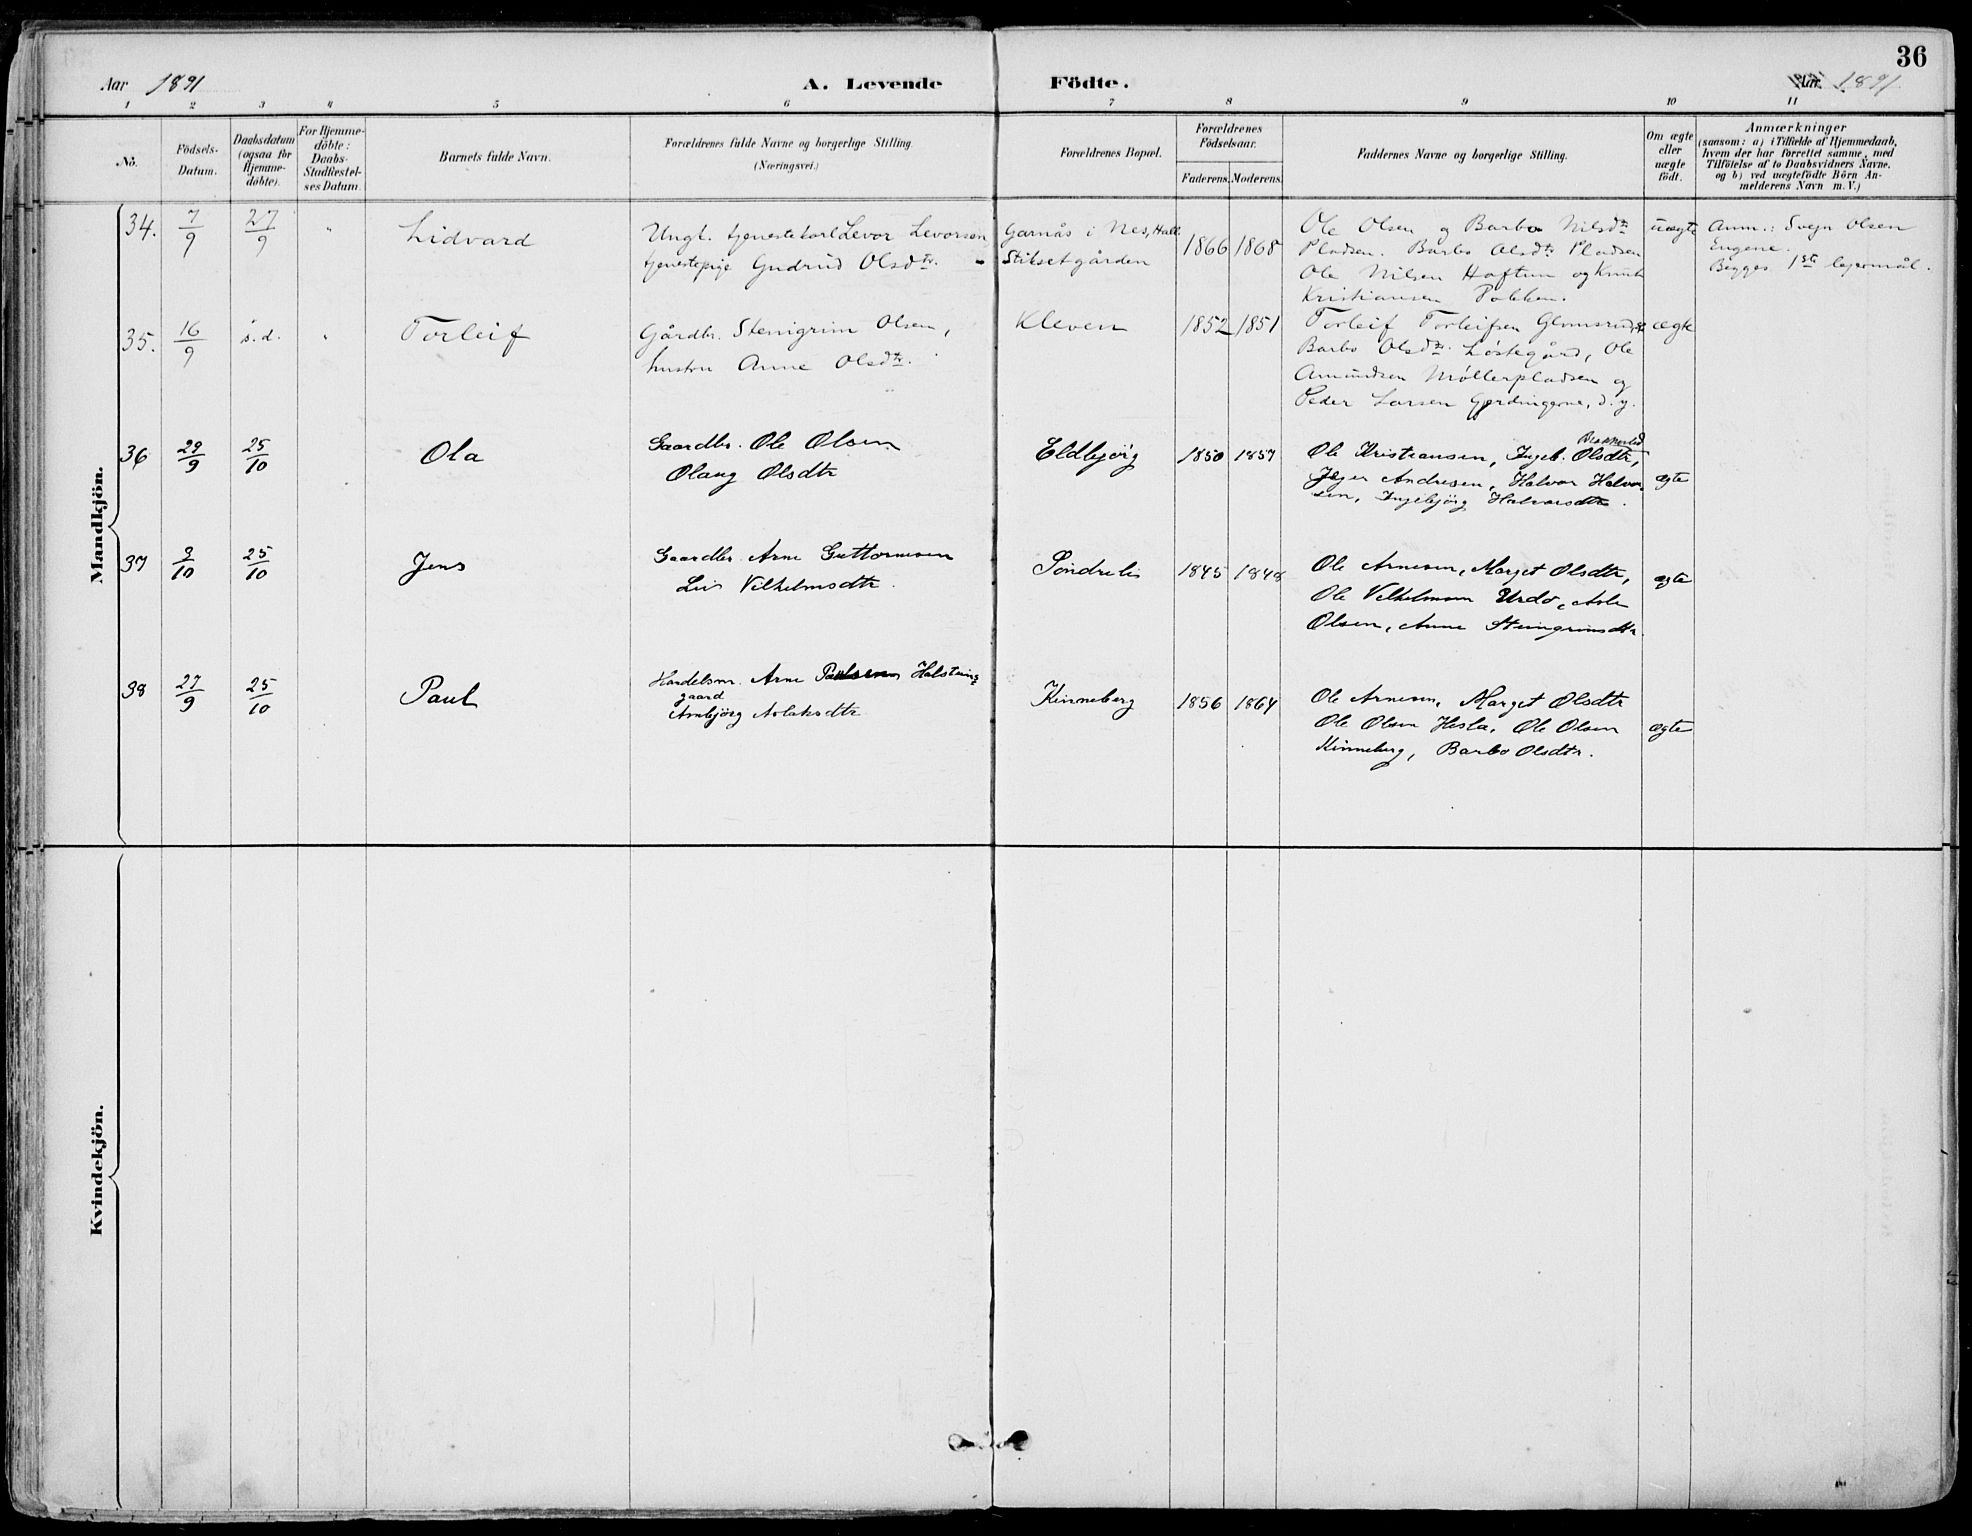 36
Aar 1891
A. Levende Födte.
Aar 1891.
1 2 3 4 5 6 7 8 9 10 11
No.
Födsels-
Datum.
Daabsdatum
(ogsaa for
Hjemme-
döbte).
For Hjemme-
döbte:
Daabs-
Stadfæstel-
ses Datum.
Barnets fulde Navn.
Forældrenes fulde Navne og borgerlige Stilling.
(Næringsvei.)
Forældrenes Bopæl.
Forældrenes
Födselsaar.
Faderens. Moderens.
Faddernes Navne og borgerlige Stilling.
Om ægte
eller
uægte
födt.
Anmærkninger
(saasom: a) i Tilfælde af Hjemmedaab,
hvem der har forrettet samme, med
Tilföielse af to Daabsvidners Navne.
og b) ved uægtefödte Börn An-
melderens Navn m. V.)
Mandkjön.
34. 7/9 27/9 " Lidvard
Ungk. tjenestekarl Levor Levorsen,
tjenestepige Gudrud Olsdtr.
Garnås i Nes, Hall.
Stiksetgården
1866 1868
Ole Olsen og Barbo Nilsdtr
Pladsen. Barbo Olsdtr Pladsen
Ole Nilsen Haftun og Knut
Kristiansen
uægte
Anm.: Svejn Olsen
Engene.
Begges 1ste lejermål.
35. 16/9 s.d. " Torleif
Gårdbr. Stenigrim Olsen,
hustru Anne Olsdtr.
Kleven
1852 1851
Torleif Torleifsen Glomsrud,
Barbo Olsdtr. Løstegård, Ole
Amundsen Møllerpladsen og
Peder Larsen Gjerdingerne, d. y.
ægte
36 29/9 25/10 Ola
Gaardbr. Ole Olsen
Olaug Olsdtr
Eldbjörg
1850 1857
Ole Kristiansen, Ingeb. Olsdtr,
Andresen, Halvor Halvor-
sen, Ingebjörg Halvorsdtr.
ægte
37 9/10 25/10 Jens
Gaardbr. Arne Guttormsen
Liv Vilhelmsdtr.
Söndrelis
1845 1848
Ole Arnesen, Marget Olsdtr,
Ole Vilhelmsen Urdo, Asle
Olsen, Anne Steingrimsdtr.
ægte
38 27/9 25/10 Paul
Handelsm. Arne Paulsen Halsteins-
gaard
Arnbjörg Aslaksdtr
Kinneberg
1856 1864
Ole Arnesen, Marget Olsdtr
Ole Olsen Hesla, Ole Olsen
Kinneberg, Barbo Olsdtr.
ægte
Kvindekjön.